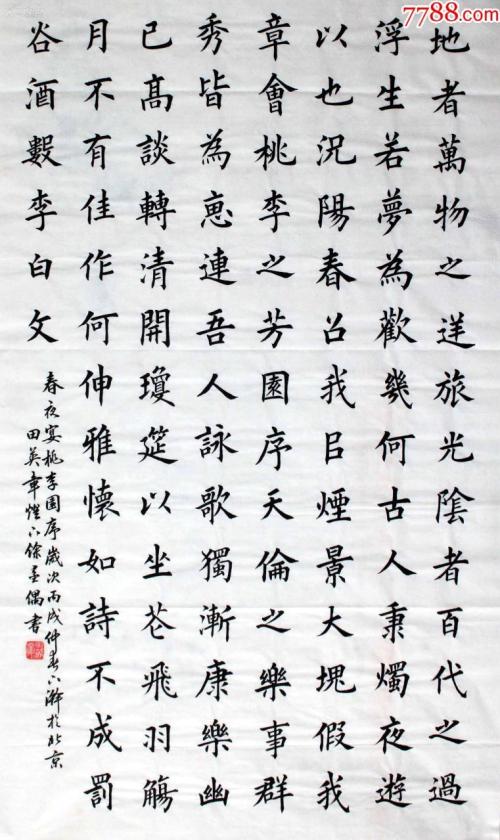 7788.com
地者萬物之逆旅光陰者百代之過
浮生若夢為歡幾何古人秉燭夜遊
以也況陽春召我㠯煙景大塊假我
章會桃李之芳園序天倫之樂事群
秀皆為惠連吾人詠歌獨漸康樂幽
已高談轉清開瓊筵以坐花飛羽觴
月不有佳作何伸雅懷如詩不成罰
谷酒數李白文
春夜宴桃李園序歲次丙戌仲春下澣於北京
田英章燈下餘墨偶書